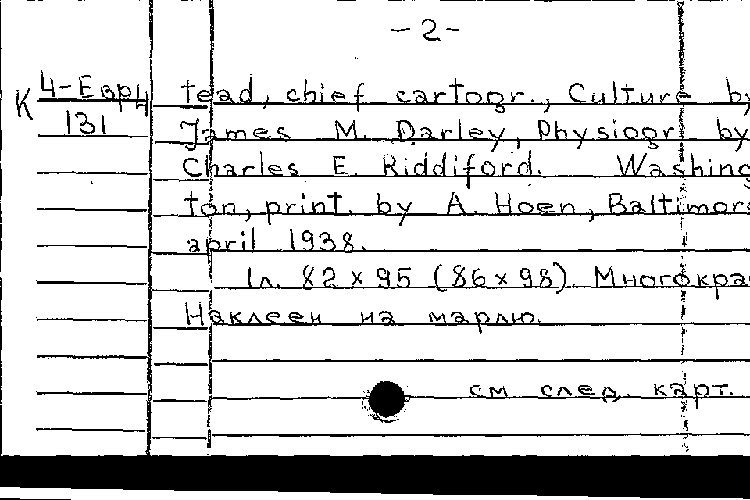 -2-
К 4-Евр4
131
tead, chief cartogr., Culture by
James M. Darley, Physiogr by
Charles E. Riddiford. Washing
ton, print. by A. Hoen, Baltimore
april 1938.
1л. 82 x 95 (86 x 98). Многокра
Наклеен на марлю.
см след. карт.